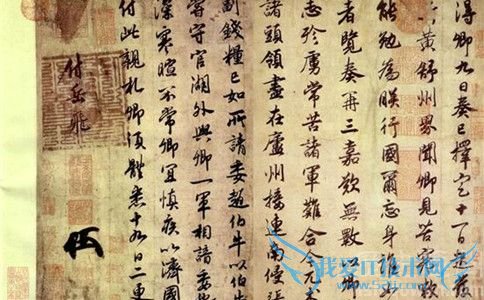 得卿九日奏已擇定十一日起發
黃舒州界聞卿見苦寒嗽
能勉為朕行國爾忘身誰如
者覽奏再三嘉歎無斁以卿
志殄虜常苦諸軍難合今兀
諸頭領盡在廬州接連南侵張
副錢糧已如所請委趙伯牛以伯牛
嘗守官湖外與卿一軍相諳妥也
深寒暄不常卿宜慎疾以濟國
付此親札卿須體悉十九日二更
付岳飛